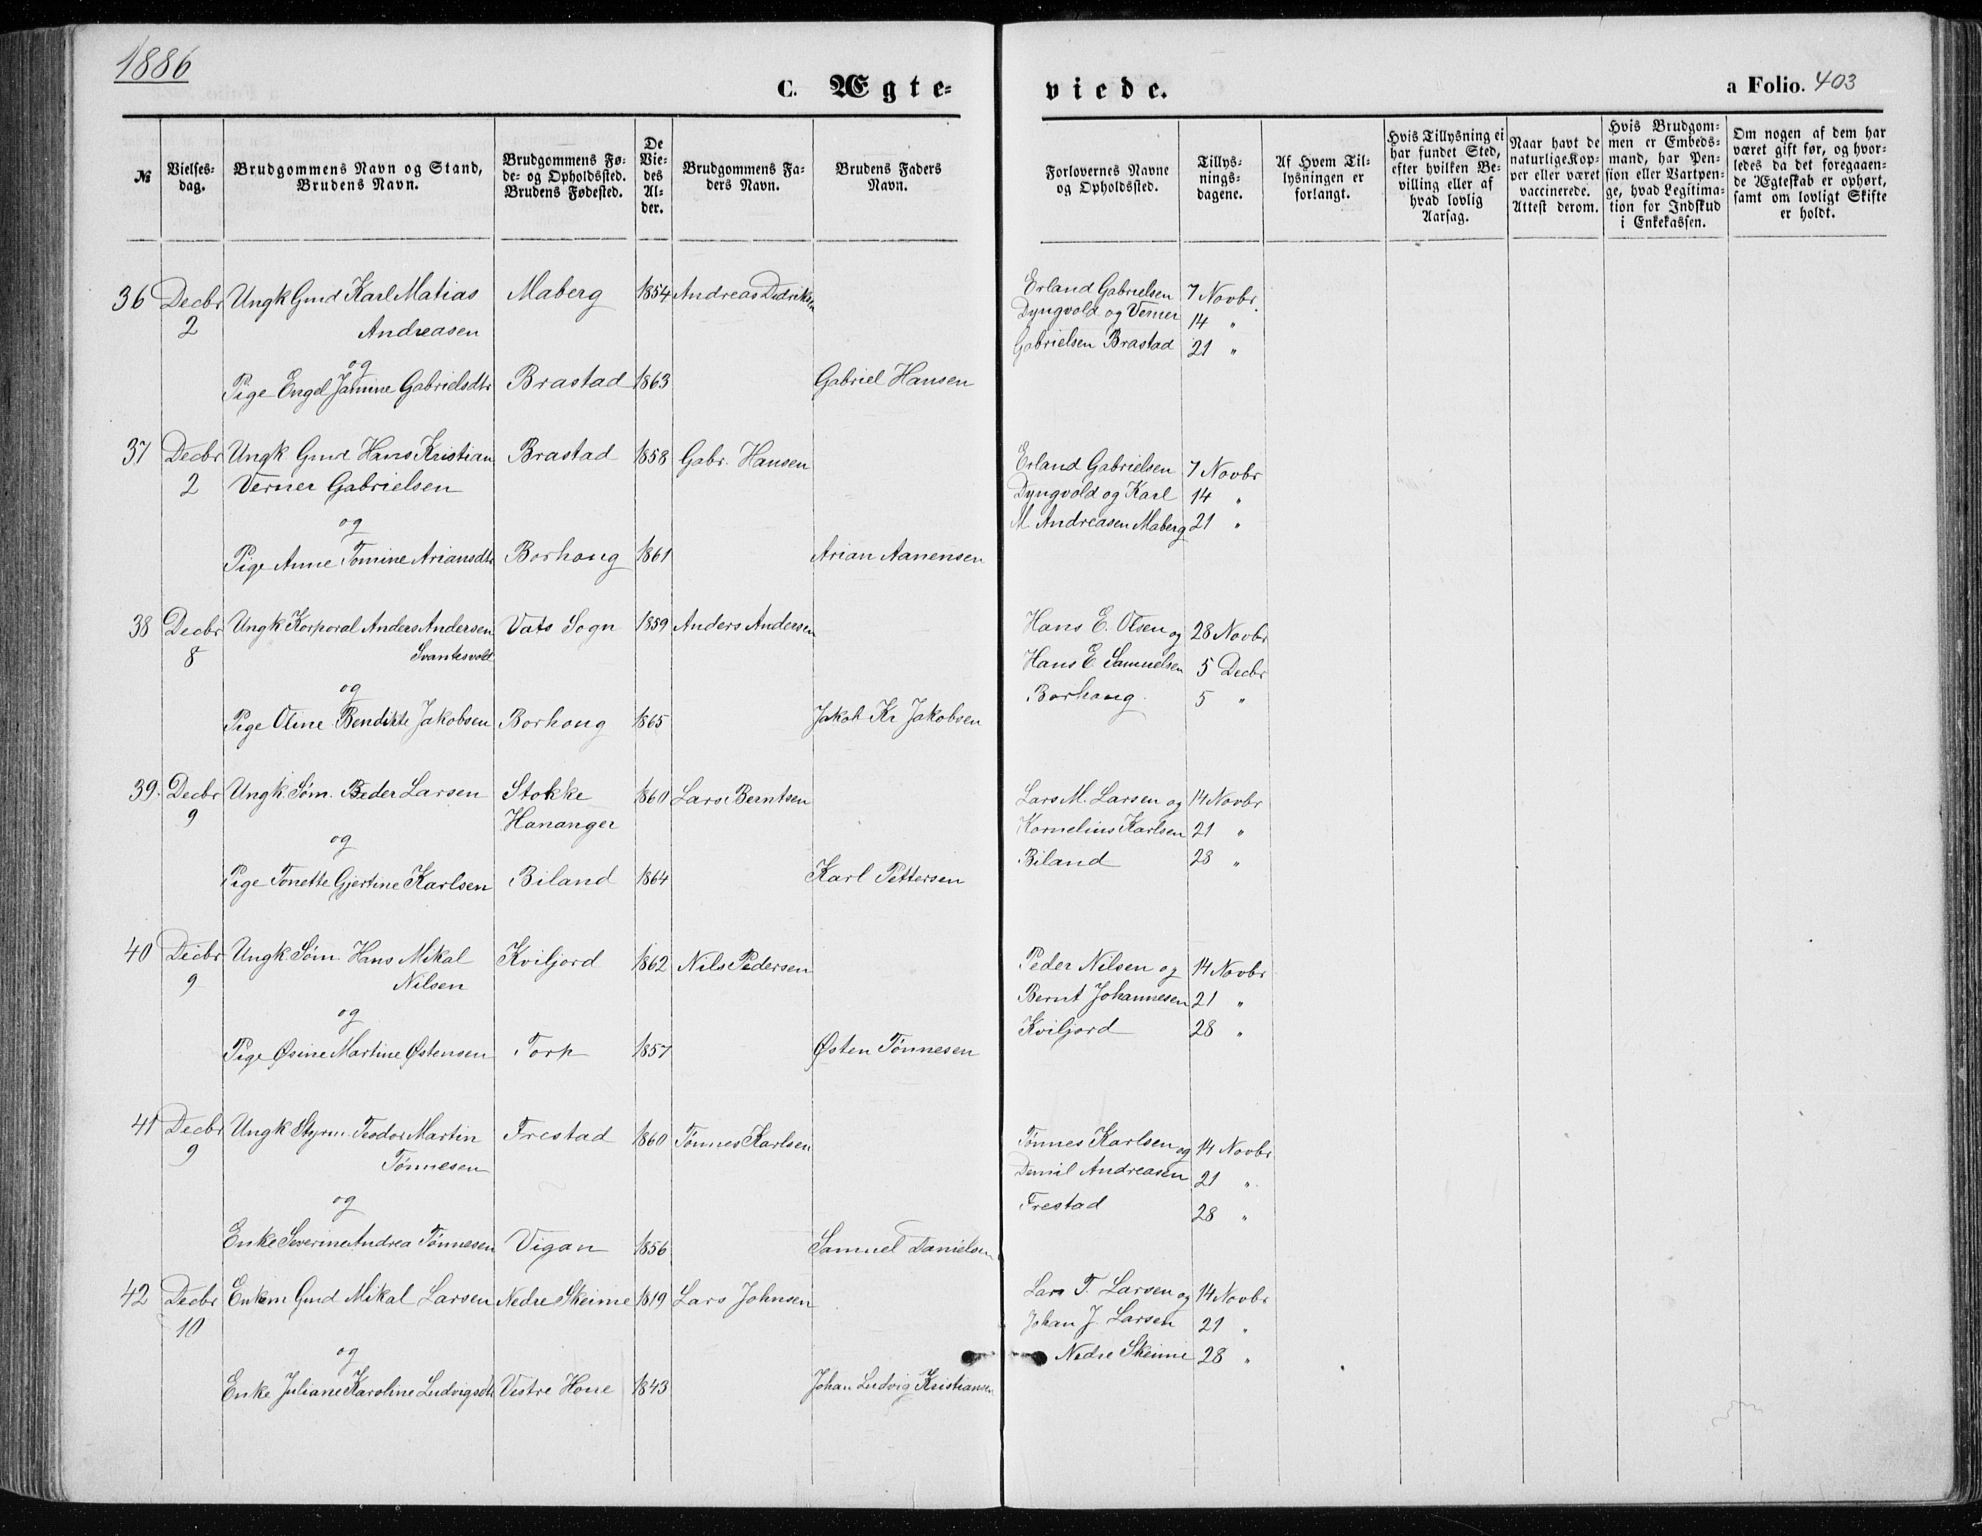 1886
C. Ægte-
viede.
a Folio. 403
№
Vielses-
dag.
Brudgommens Navn og Stand,
Brudens Navn.
Brudgommens Fø-
de- og Opholdssted.
Brudens Fødested.
De
Vie-
des
Al-
der.
Brudgommens Fa-
ders Navn.
Brudens Faders
Navn.
Forlovernes Navne
og Opholdssted.
Tillys-
nings-
dagene.
Af Hvem Til-
lysningen er
forlangt.
Hvis Tillysning ei
har fundet Sted,
efter hvilken Be-
villing eller af
hvad lovlig
Aarsag.
Naar havt de
naturlige Kop-
per eller været
vaccinerede.
Attest derom.
Hvis Brudgom-
men er Embeds-
mand, har Pen-
sion eller Vartpen-
ge, hvad Legitima-
tion for Indskud
i Enkekassen.
Om nogen af dem har
været gift før, og hvor-
ledes da det foregaaen-
de Ægteskab er ophørt,
samt om lovligt Skifte
er holdt.
36 Decbr Ungk Gmd Karl Matias Maberg 1854 Andreas Dedriksen Erland Gabrielsen 7 Novbr.
2 Andreasen Dyngvold og Verner 14 "
og Gabrielsen Brastad 21 "
Pige Engel Jamine Gabrielsdtr Brastad 1863 Gabriel Hansen
37 Decbr Ungk Gmd Hans Kristian Brastad 1858 Gabr. Hansen Erland Gabrielsen 7 Novbr
2 Verner Gabrielsen Dyngvold og Karl 14 "
og M Andreasen Maberg 21 "
Pige Anne Tomine Ariansdtr Borhoug 1861 Arian Aanensen
38 Decbr Ungk Korporal Anders Andersen Vats Sogn 1859 Anders Andersen Hans E. Olsen og 28 Novbr
8 Svantesvold Hans E Samuelsen 5 Decbr
og Borhoug. 5 "
Pige Oline Bendikte Jakobsen Borhoug 1865 Jakob Kr Jakobsen
39. Decbr Ungk. Søm. Peder Larsen Stokke 1860 Lars Berntsen Lars M. Larsen og 14 Novbr
9 Hananger Kornelius Karlsen 21 "
og Biland 28 "
Pige Tonette Gjertine Karlsen Biland 1864 Karl Pettersen
40 Decbr Ungk Søm. Hans Mikal Kviljord 1862 Nils Pedersen Peder Nilsen og 14 Novbr
9 Nilsen Bernt Johannesen 21 "
og Kviljord 28 "
Pige Øsine Martine Østensen Torp 1857 Østen Tønnesen
41 Decbr Ungk Styrm. Teodor Martin Frestad 1860 Tønnes Karlsen Tønnes Karlsen og 14 Novbr
9 Tønnesen Daniel Andreasen 21 "
og Frestad 28 "
Enke Severine Andrea Tønnesen Vigan 1856 Samuel Danielsen
42 Decbr Enkem Gmd Mikal Larsen Nedre Skeime 1819 Lars Johnsen Lars T. Larsen og 14 Novbr
10 Johan J. Larsen 21 "
og Nedre Skeime 28 "
Enke Juliane Karoline Ludvigsdtr Vestre Houe 1843 Johan Ludvig Kristiansen